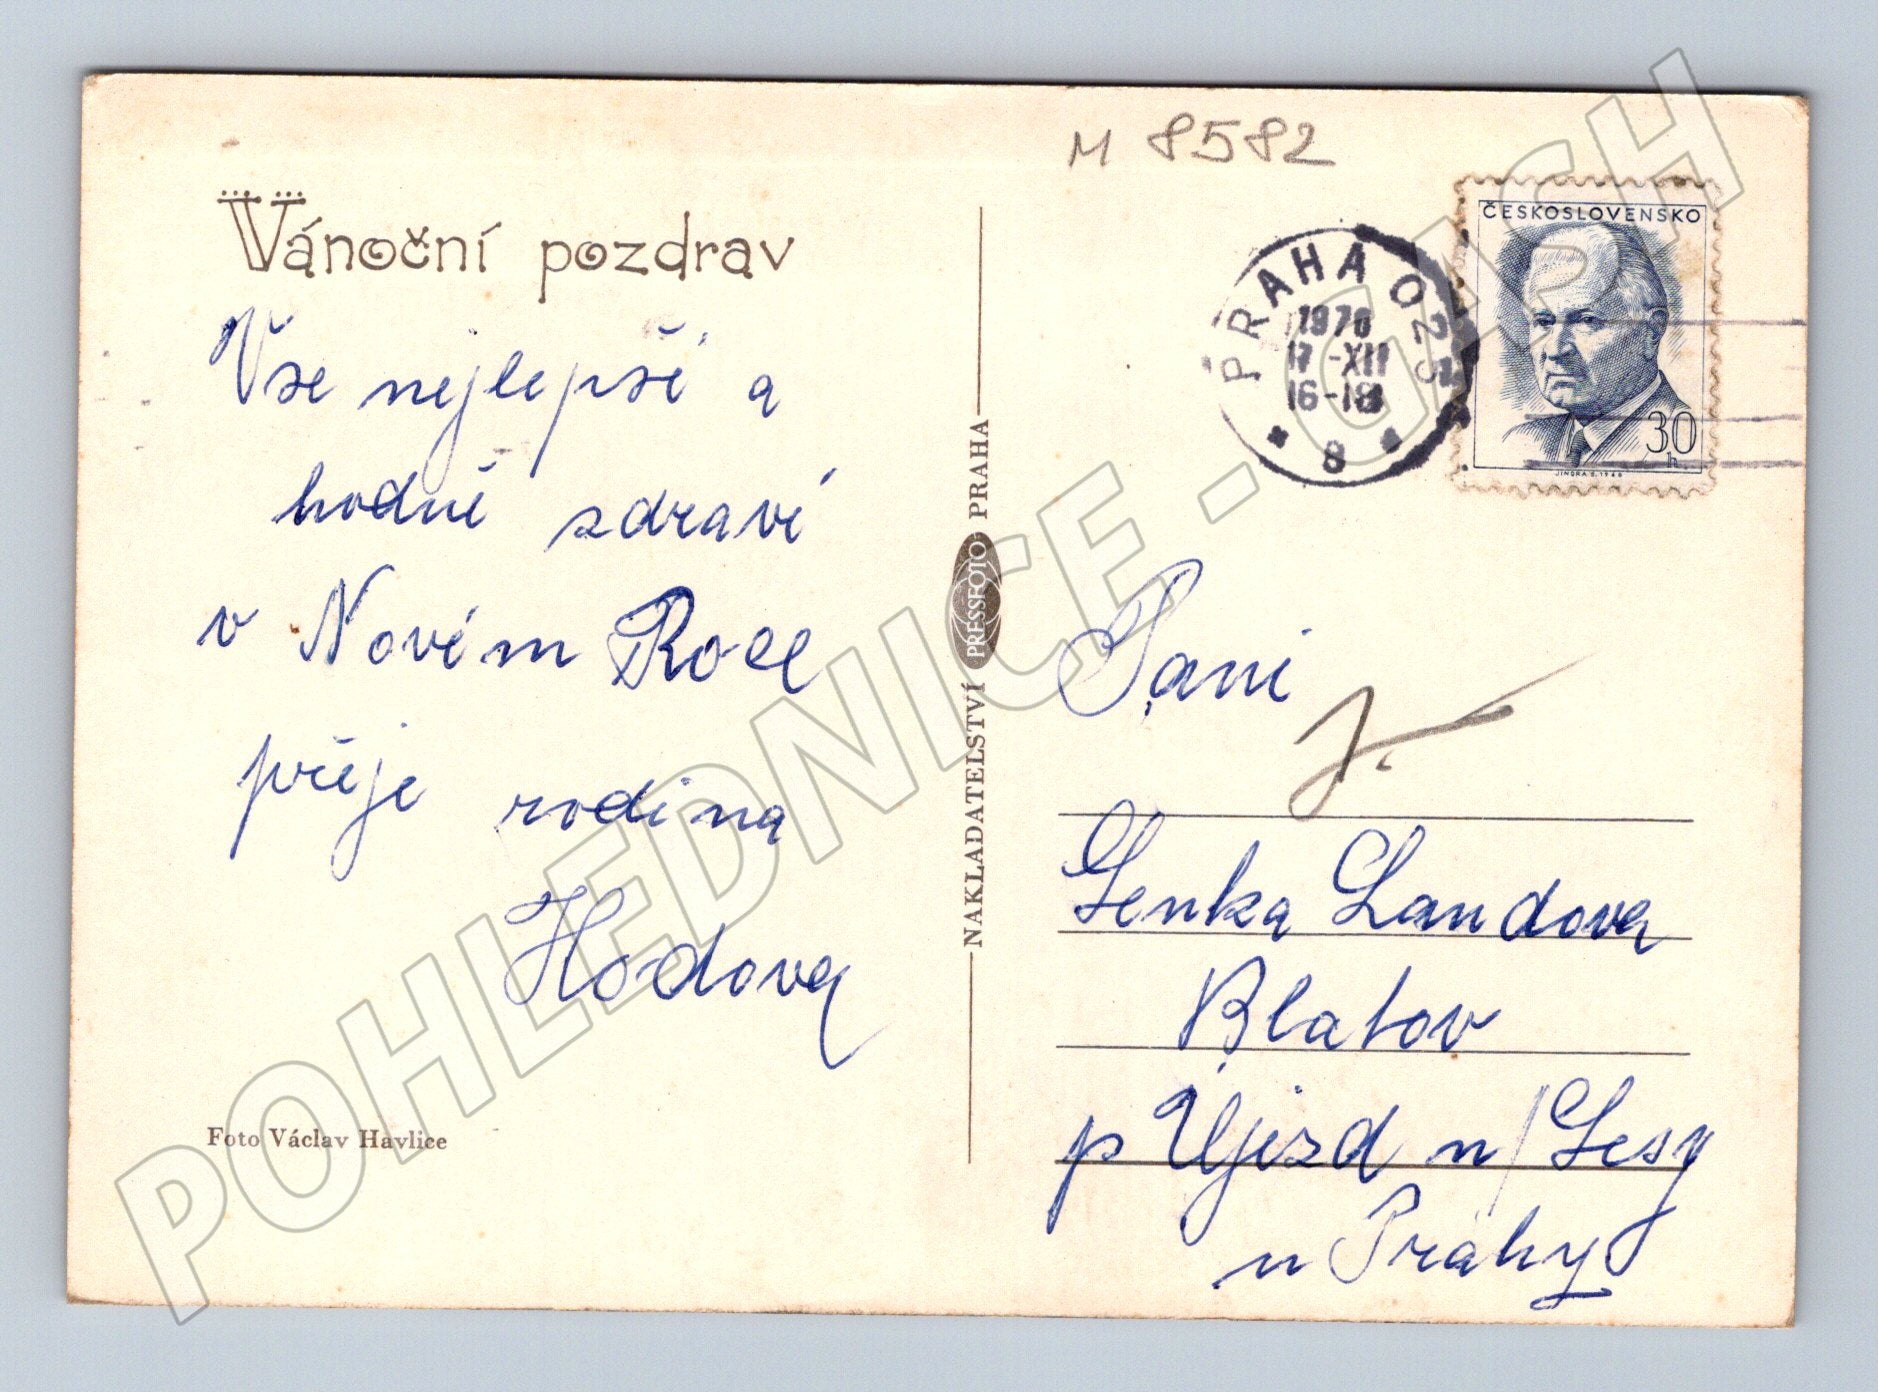 M 8582
Vánoční pozdrav
Vše nejlepší a
hodně zdraví
v Novém Roce
přeje rodina
Hodova
Foto Václav Havlice
NAKLADATELSTVÍ PRESSFOTO PRAHA
PRAHA 025
1970
17-XII
16-18
8
ČESKOSLOVENSKO
30
h
JINDRA S. 1968
Paní
Lenka Landova
Blatov
p Újezd n/Lesy
u Prahy
POHLEDNICE - GASH